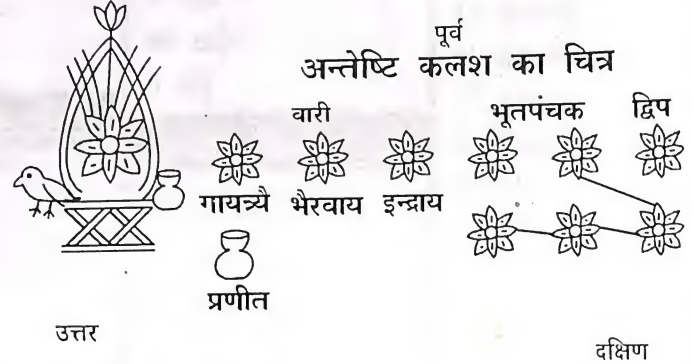 पूर्व
अन्तेष्टि कलश का चित्र
वारी भूतपंचक द्विप
गायत्र्यै भैरवाय इन्द्राय
प्रणीत
उत्तर
दक्षिण